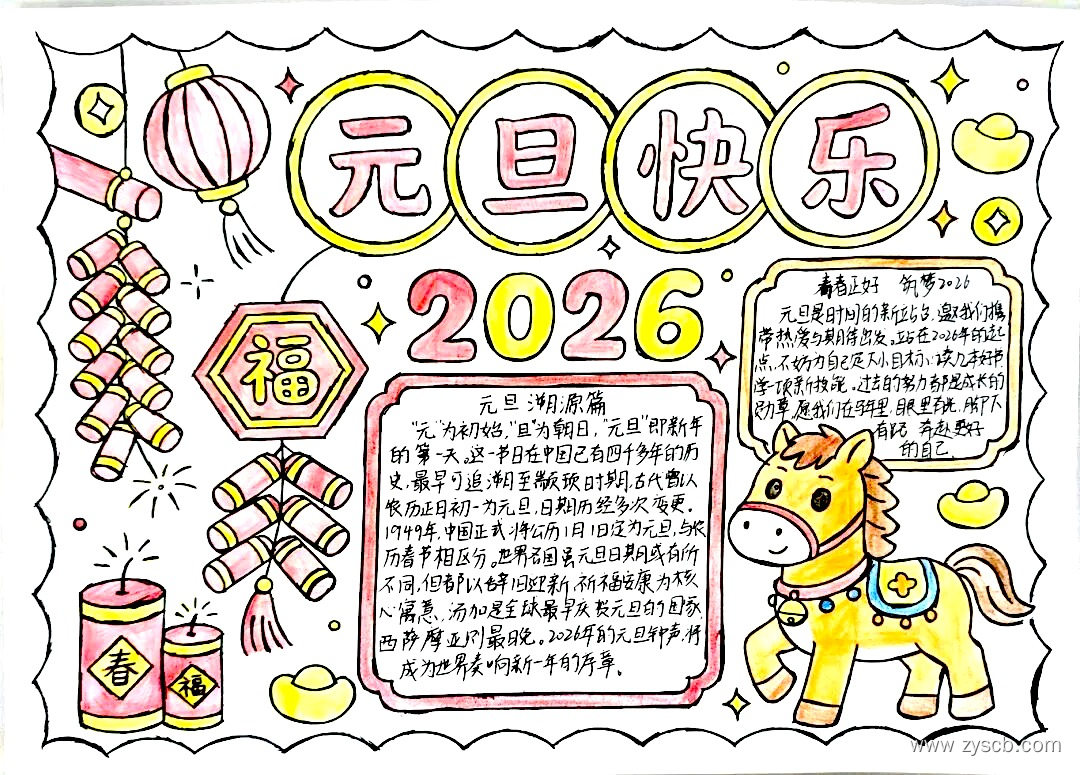 元旦快乐
2026
福
元旦溯源篇
"元"为初始,"旦"为朝日,"元旦"即新年
的第一天。这一节日在中国已有四千多年的历
史,最早可追溯至颛顼时期,古代曾以
农历正月初一为元旦,日期历经多次变更。
1949年,中国正式将公历1月1日定为元旦,与农
历春节相区分。世界各国虽元旦日期或有所
不同,但都以辞旧迎新,祈福安康为核
心寓意,汤加是全球最早庆祝元旦的国家,
西萨摩亚则最晚。2026年的元旦钟声,将
成为世界奏响新一年的序章。
青春正好 筑梦2026
元旦是时间的新站台,邀我们携
带热爱与期待出发。站在2026年的起
点,不妨为自己定下小目标:读几本好书
学一项新技能。过去的努力都是成长的
勋章,愿我们在新年里,眼里有光,脚下
有路,奔赴更好
的自己
春
福
www.zyscb.com